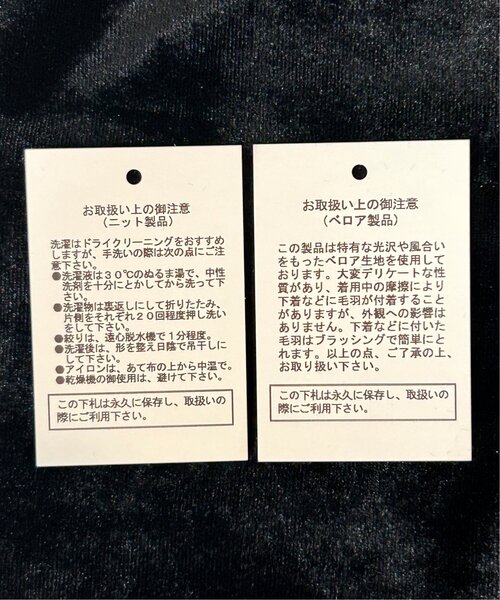 お取扱い上の御注意
(ニット製品)
洗濯はドライクリーニングをおすすめ
しますが、手洗いの際は次の点にご注
意下さい。
●洗濯液は30℃のぬるま湯で、中性
洗剤を十分にとかしてから洗って下
さい。
●洗濯物は裏返しにして折りたたみ、
片側をそれぞれ20回程度押し洗い
をして下さい。
●絞りは、遠心脱水機で1分程度。
●洗濯後は、形を整え日陰で吊干しに
して下さい。
●アイロンは、あて布の上から中温で。
●乾燥機の御使用は、避けて下さい。
この下札は永久に保存し、取扱いの
際にご利用下さい。
お取扱い上の御注意
(ベロア製品)
この製品は特有な光沢や風合い
をもったベロア生地を使用して
おります。大変デリケートな性
質があり、着用中の摩擦により
下着などに毛羽が付着すること
がありますが、外観への影響は
ありません。下着などに付いた
毛羽はブラッシングで簡単にと
れます。以上の点、ご了承の上、
お取り扱い下さい。
この下札は永久に保存し、取扱いの
際にご利用下さい。